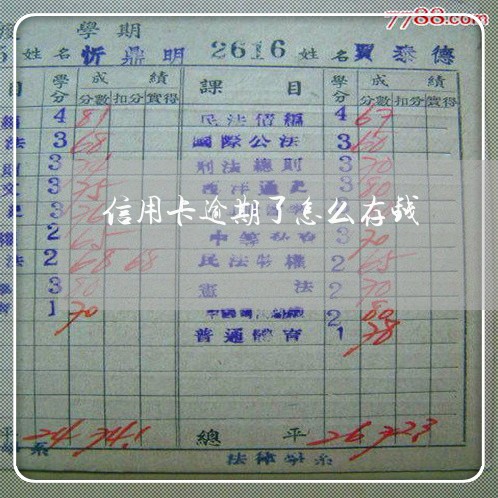 7788.com
學期
姓名 忻鼎明 2616 姓名 賈泰德
目 學分 成績 課目 學分 成績
分數 扣分 實得 分數 扣分 實得
4 81 民法債編 4 67
法 3 68 國際公法 3 60
3 刑法總則 3 70
文 3 75 西洋通史 3 80
信用卡逾期了怎么存钱
權 2 65 3 70
法 2 68 68 民法物權 2 65
3 80 憲法 2 70
1 70 2 80
普通體育 1 78
平 24 74.1 總平 26 72.3
系 法律學系